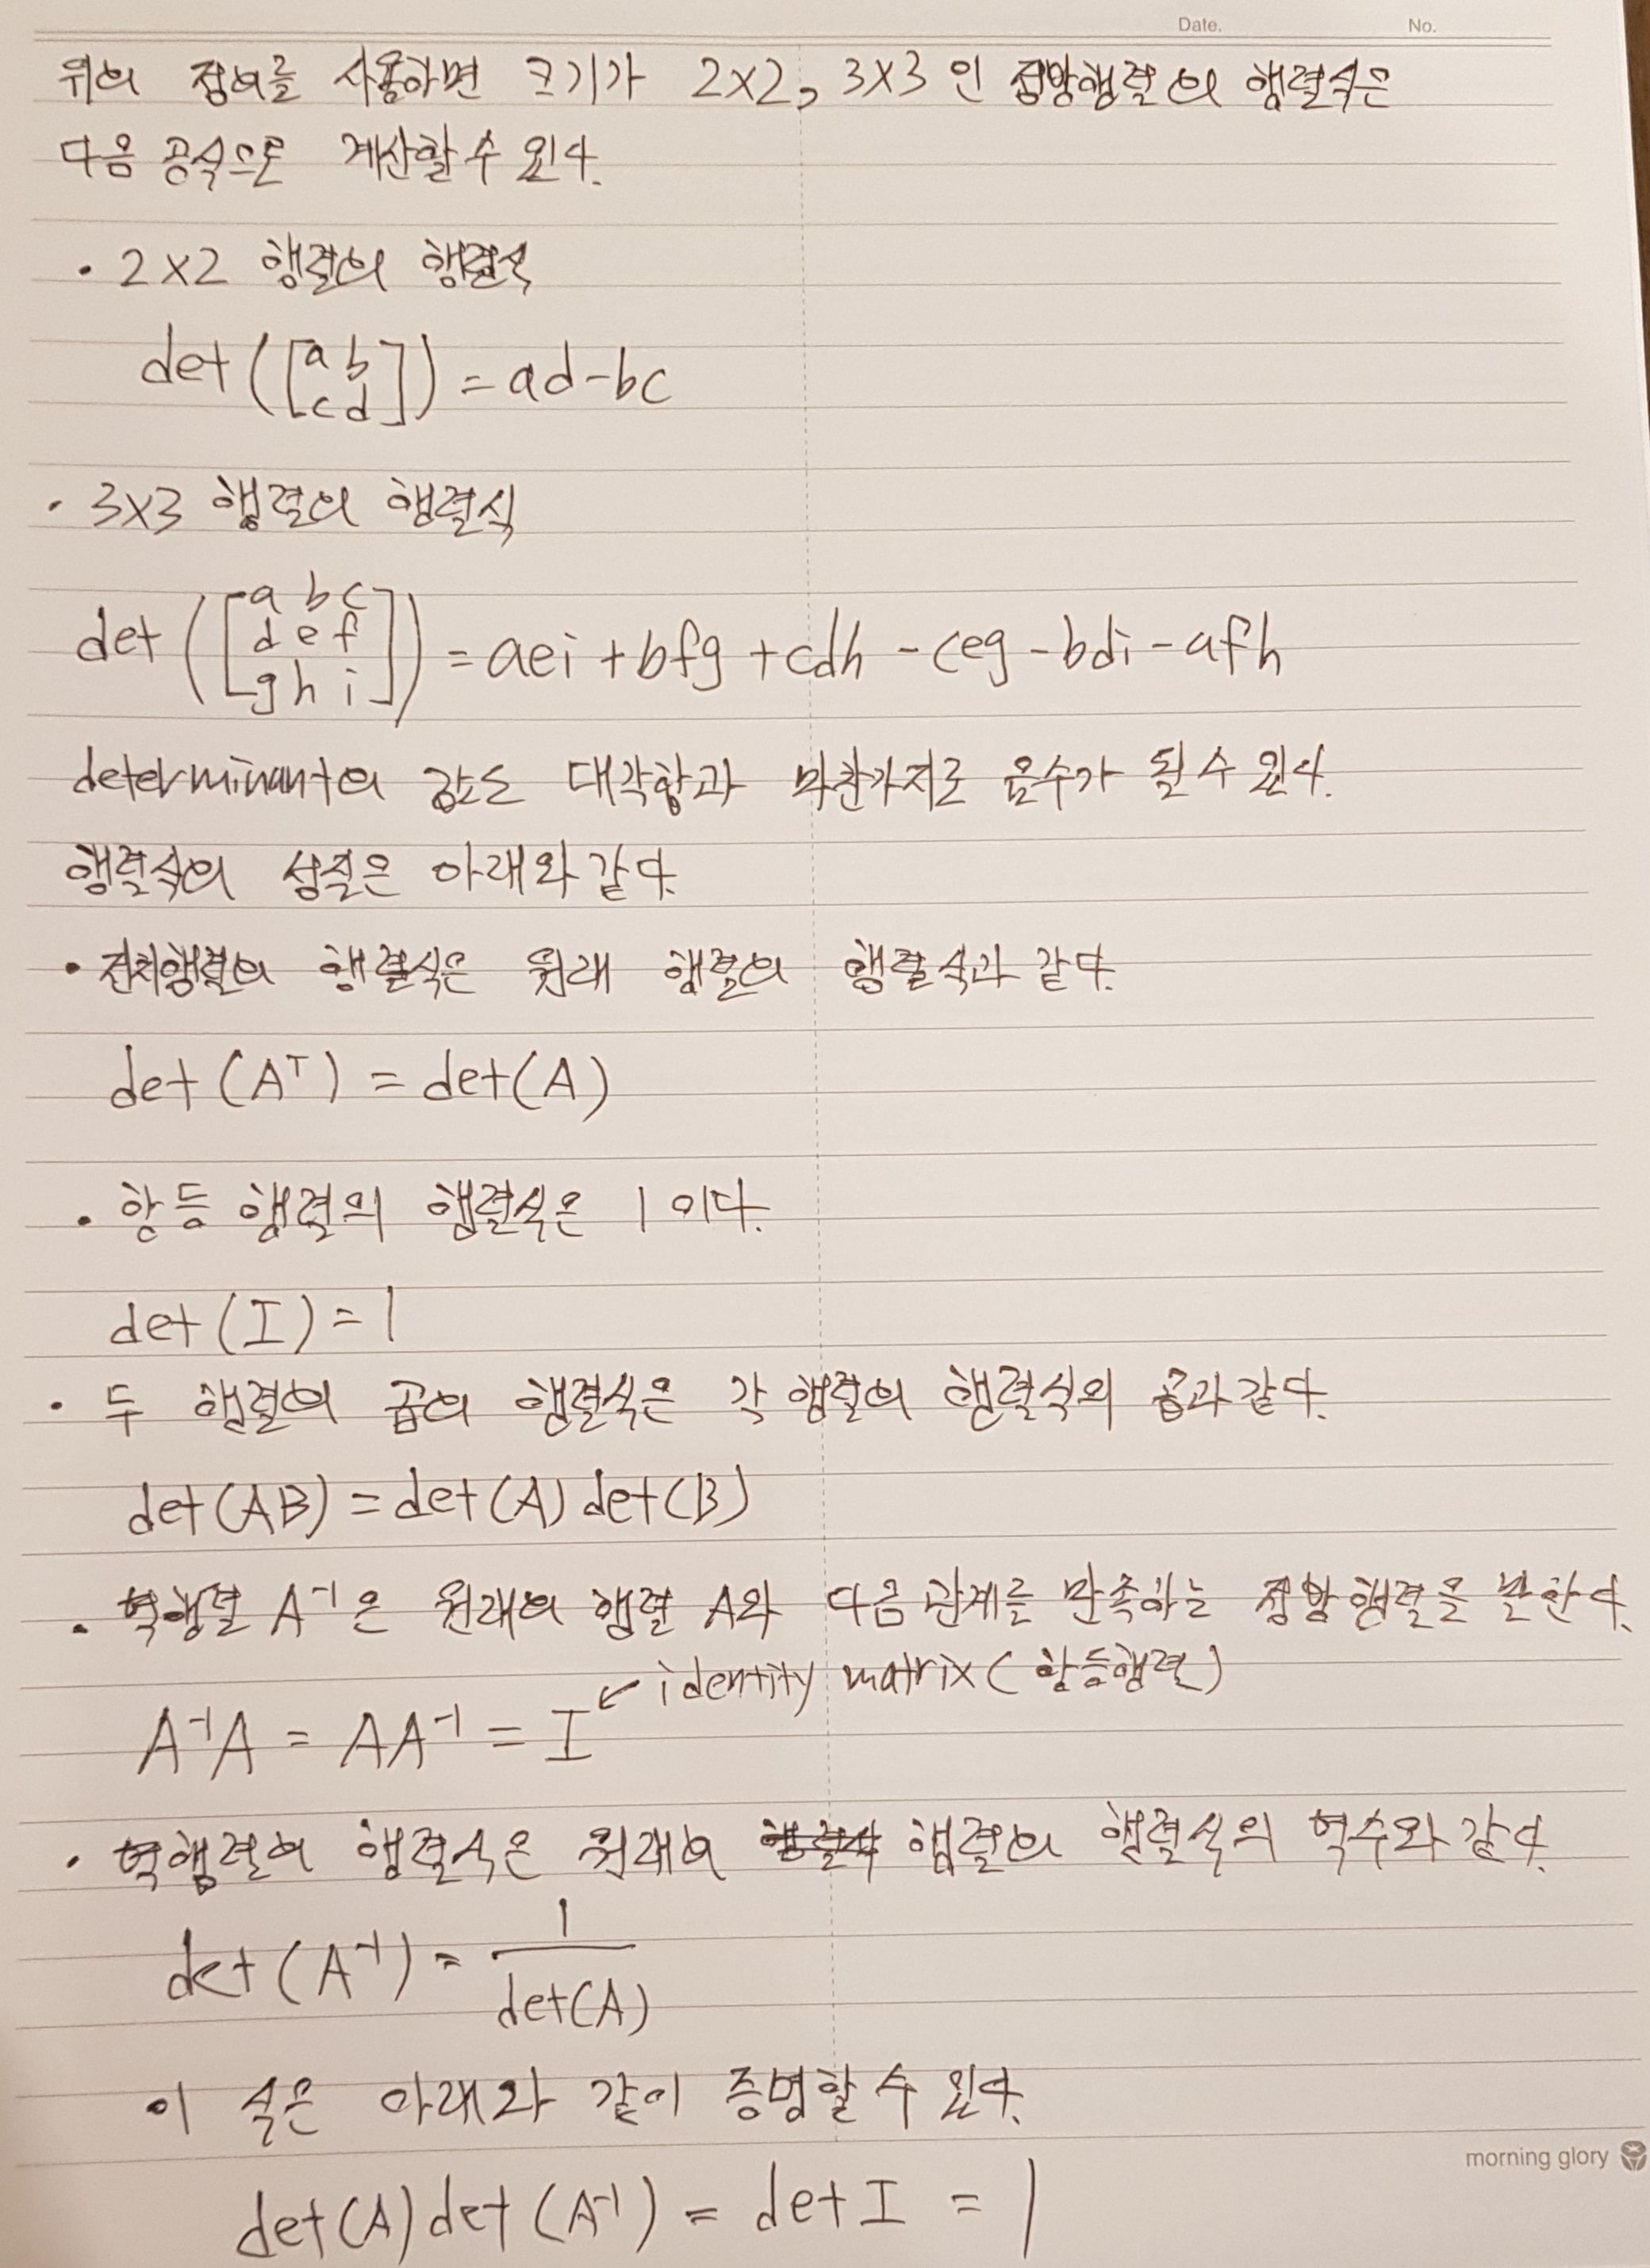 Date. No.
위의 정의를 사용하면 크기가 2×2, 3×3 인 정방행렬의 행렬식은
다음 공식으로 계산할 수 있다.
• 2×2 행렬의 행렬식
det([a b
c d]) = ad-bc
• 3×3 행렬의 행렬식
det([a b c
d e f
g h i]) = aei + bfg + cdh - ceg - bdi - afh
determinant의 값도 대각합과 마찬가지로 음수가 될 수 있다.
행렬식의 성질은 아래와 같다.
• 전치행렬의 행렬식은 원래 행렬의 행렬식과 같다.
det(Aᵀ) = det(A)
• 항등 행렬의 행렬식은 1 이다.
det(I) = 1
• 두 행렬의 곱의 행렬식은 각 행렬의 행렬식의 곱과 같다.
det(AB) = det(A) det(B)
• 역행렬 A⁻¹은 원래의 행렬 A와 다음 관계를 만족하는 정방 행렬을 말한다.
← identity matrix (항등행렬)
A⁻¹A = AA⁻¹ = I
• 역행렬의 행렬식은 원래의 행렬의 행렬식의 역수와 같다.
det(A⁻¹) = 1
det(A)
이 식은 아래와 같이 증명할 수 있다.
morning glory
det(A) det(A⁻¹) = det I = 1